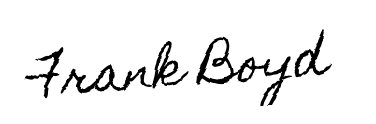 Frank Boyd